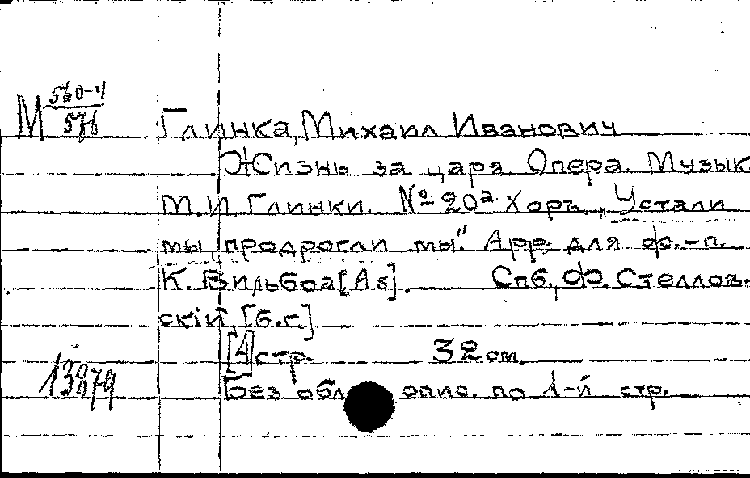 М 560-4/576
Глинка, Михаил Иванович
Жизнь за царя. Опера. Музык.
М.И. Глинки. № 20а Хоръ „Устали
мы продрогли мы". Арр. для ф.-п.
К. Вильбоа [As]. Спб, Ф. Стеллов-
скій [б.г.]
[4] стр. 32 см.
13879
Без обл. опис. по 1-й стр.